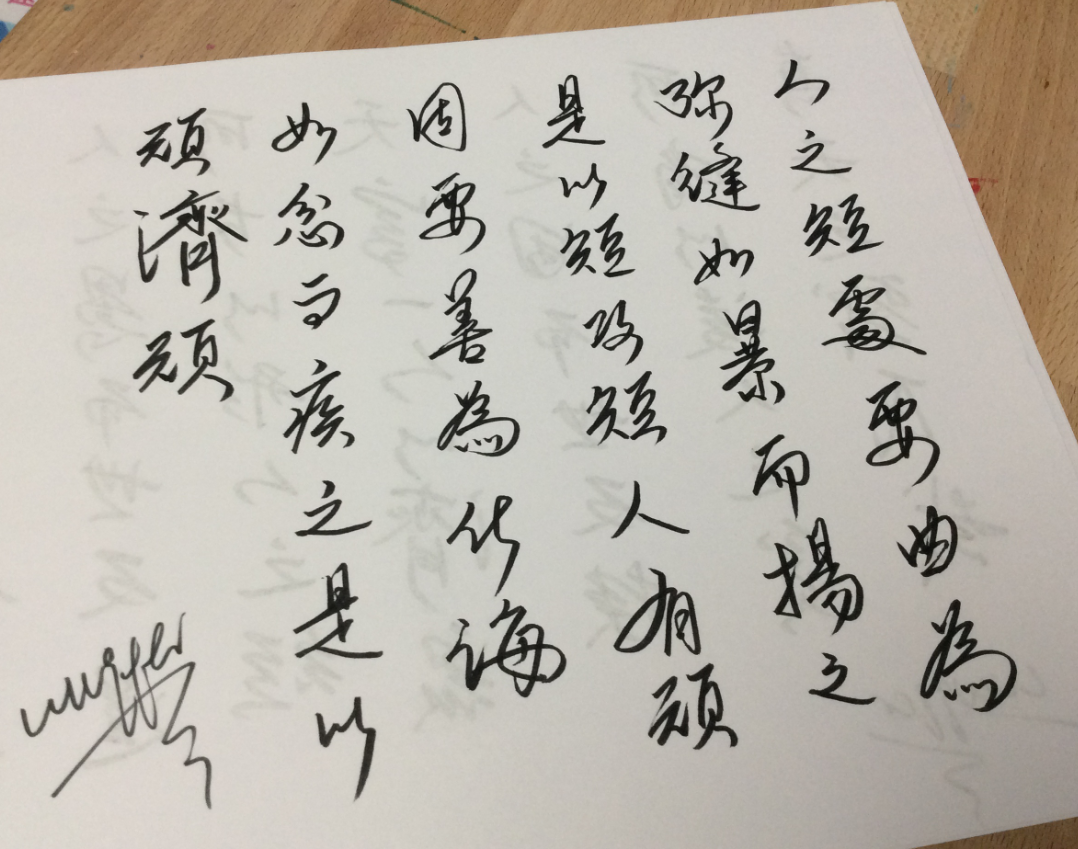 人之短處要曲為
弥縫如暴而揚之
是以短攻短人有頑
固要善為化誨
如忿而疾之是以
頑濟頑